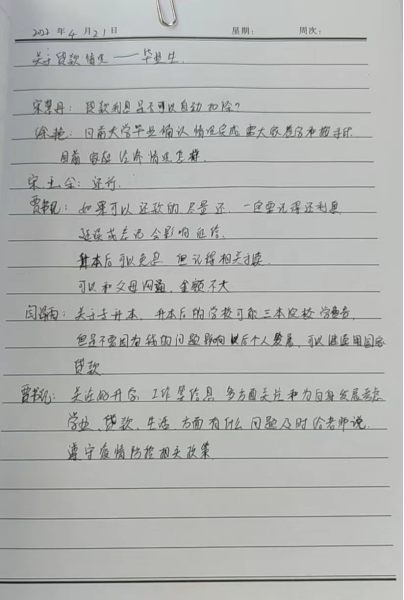 2022年4月21日 星期: 周次:
关于贷款情况——毕业生
贷款利息是不可以自动扣除?
徐艳: 目前大学毕业确认情况完成 需大家签名和按手印
目前家庭经济情况怎样
宋 : 还行.
贾书记: 如果可以还款的尽量还. 一定要记得还利息
延误或忘记会影响征信.
升本后可以免息 但记得相关手续.
可以和父母沟通, 金额不大
闫 : 关于专升本, 升本后的学校可能三本院校学费贵,
但是不要因为钱的问题影响以后个人发展, 可以继续用国家
贷款
贾书记: 关注好升学、工作等信息 多方面关注和为自身发展
学业、贷款、生活 方面有什么问题及时给老师说.
遵守疫情防控相关政策